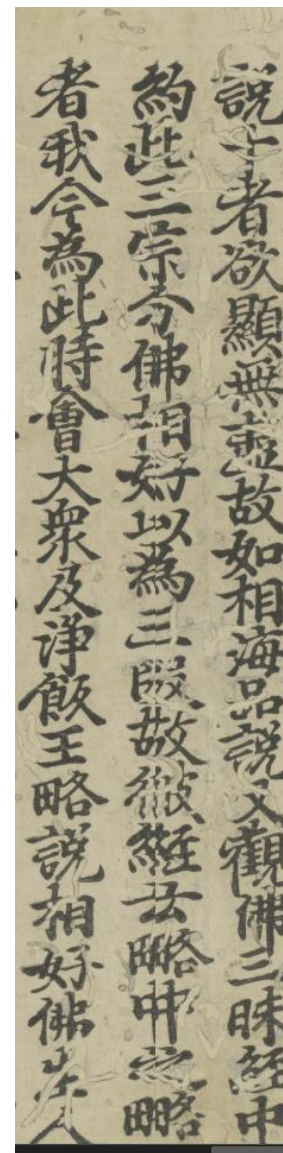 説十者欲顯無盡故如相海品説又觀佛三昧經中
約此三宗分佛相好以為三段故彼經云略中之略
者我今為此時會大衆及浄飯王略説相好佛生人